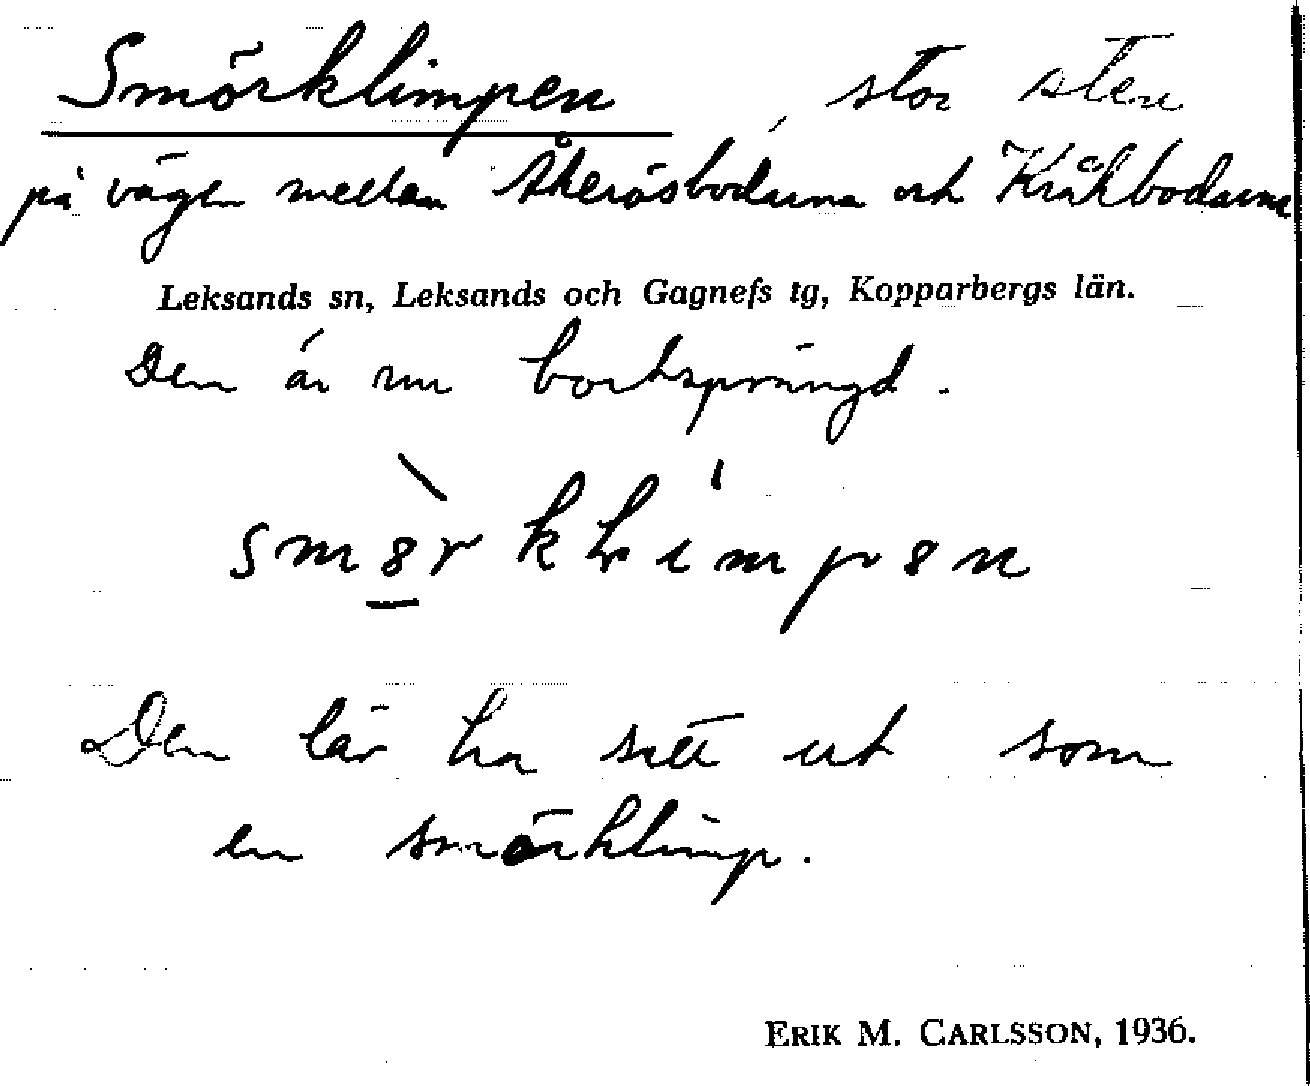 Smörklimpen, stor sten
på vägen mellan Åkeröbodarna och Kråkbodarna
Leksands sn, Leksands och Gagnefs tg, Kopparbergs län.
Den är nu bortsprängd.
Den lär ha sett ut som
en smörklimp.
ERIK M. CARLSSON, 1936.